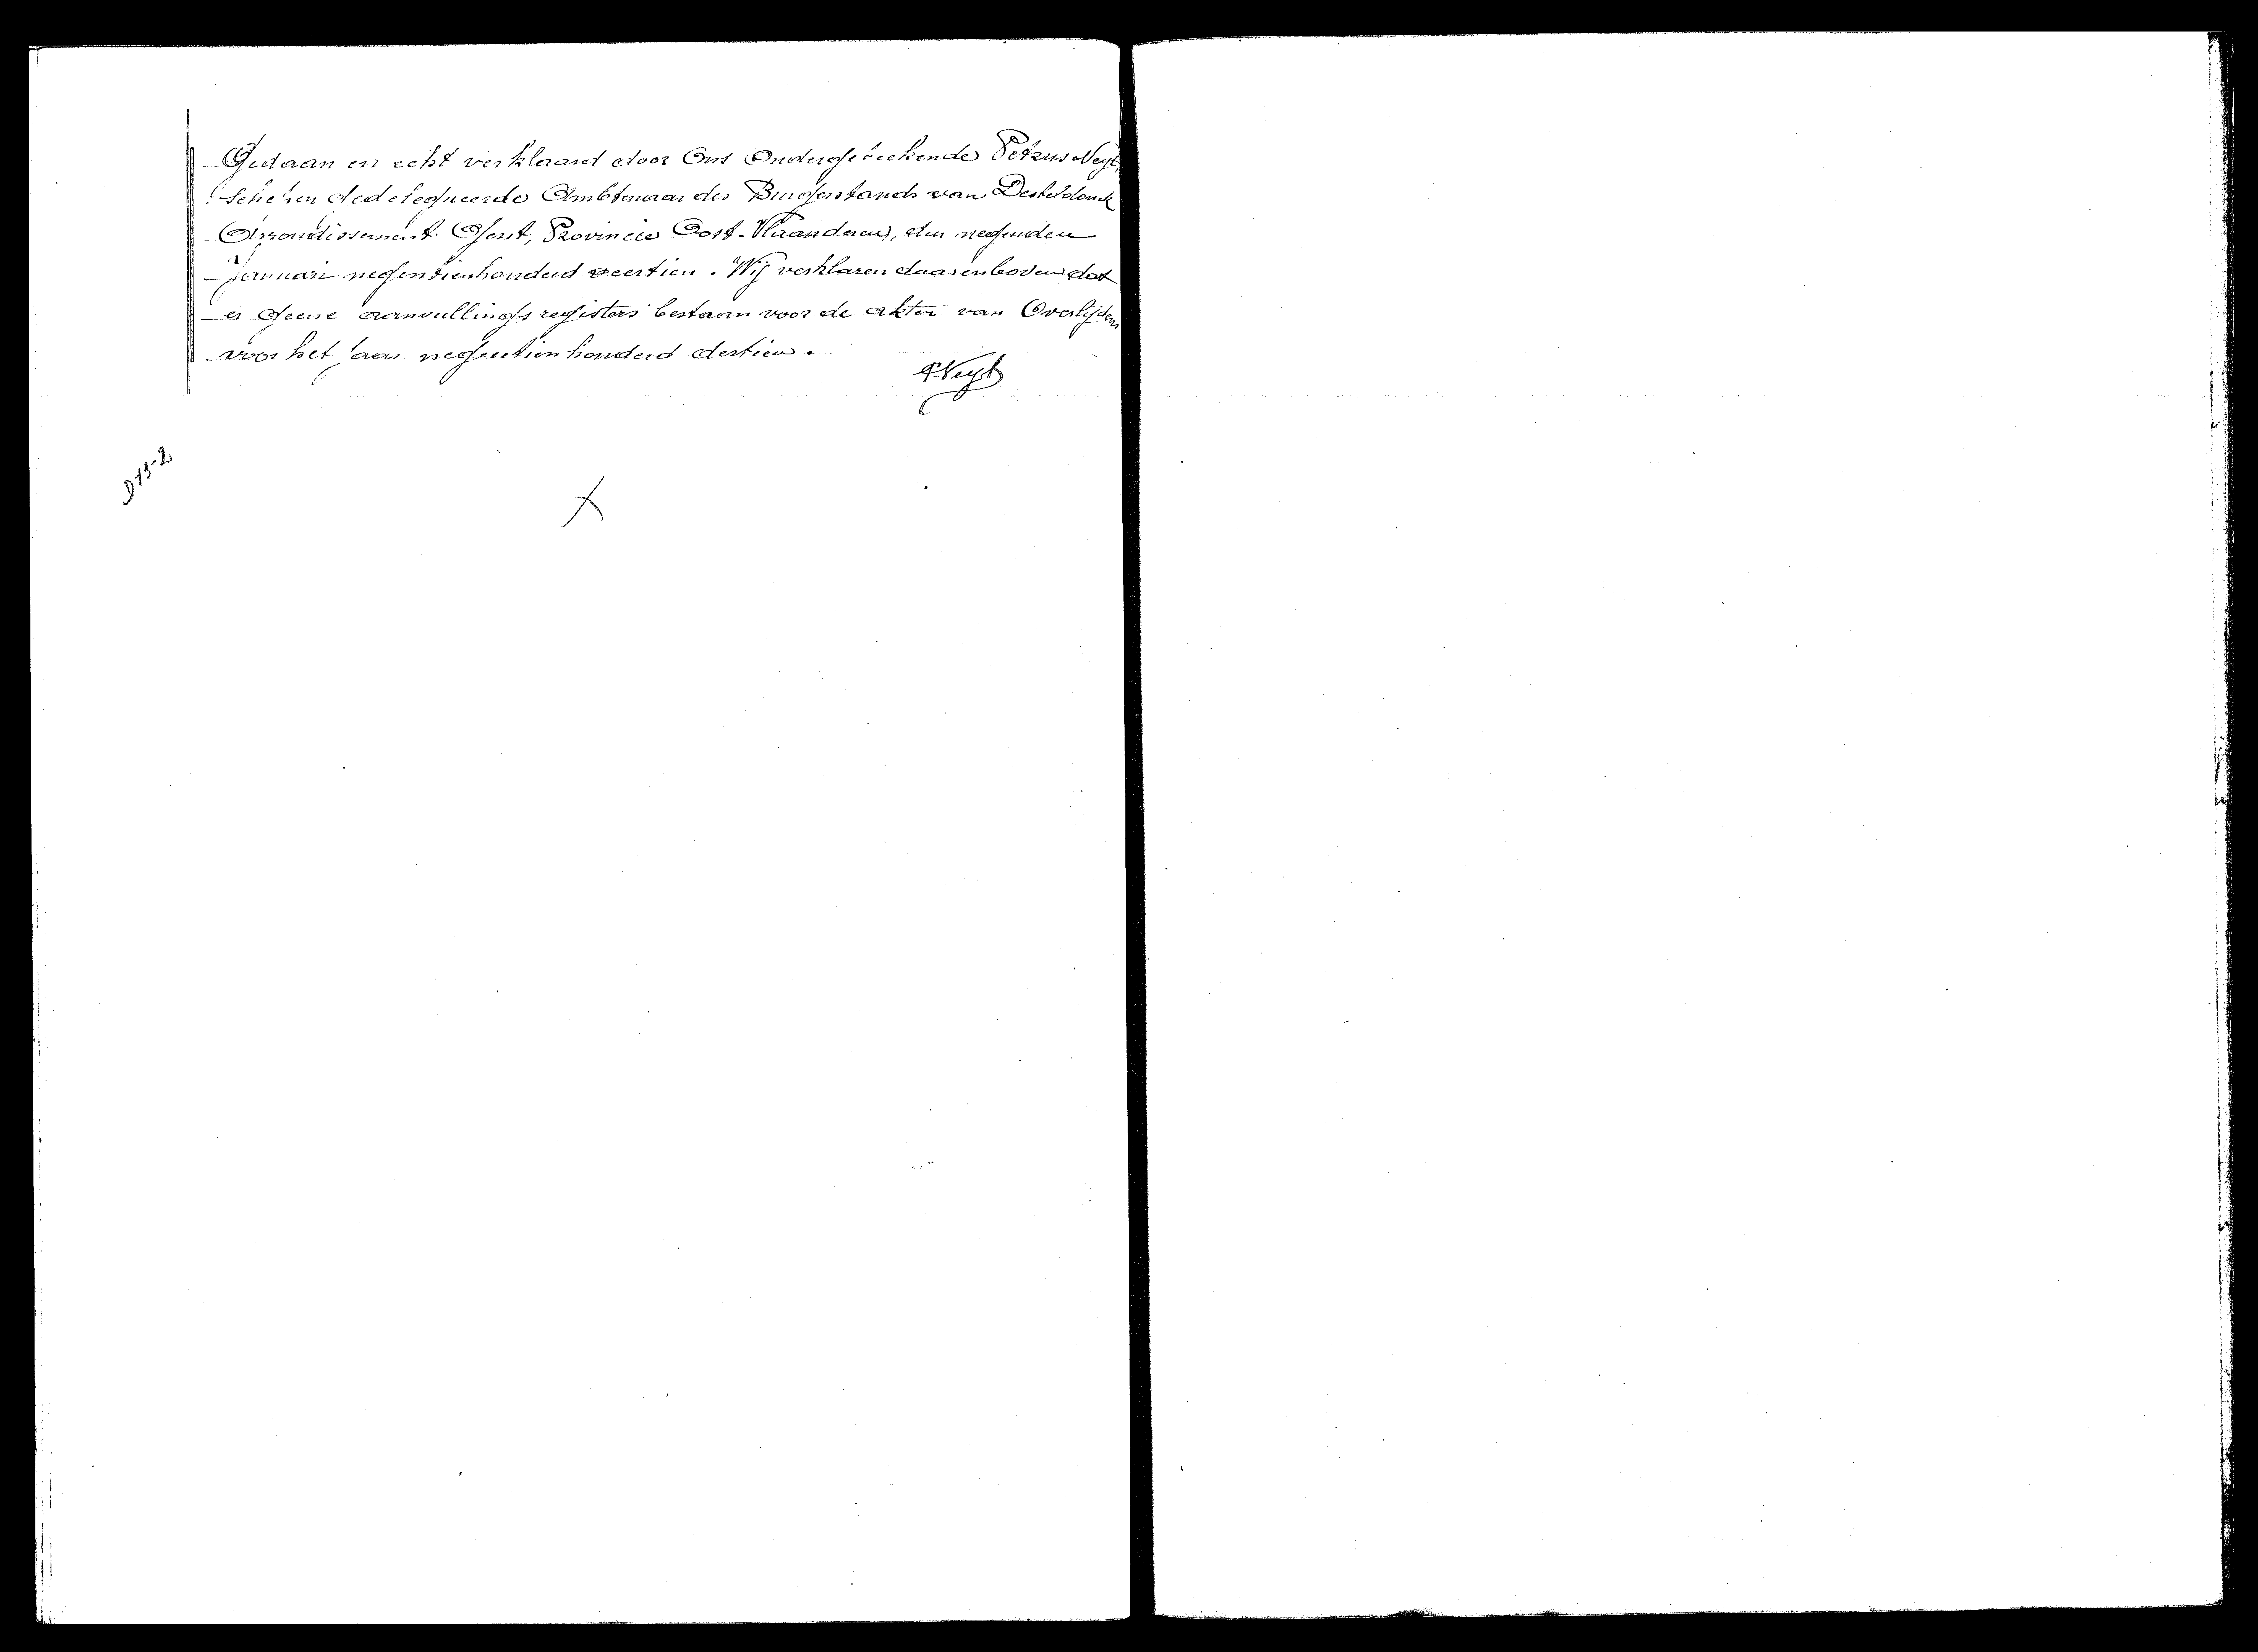 Gedaan en echt verklaard door Ons Ondergeteekende Petrus Neyt,
Schepen Gedelegueerde Ambtenaar des Burgerstands van Desteldonck
Arrondissement Gent, Provincie Oost-Vlaanderen, den negenden
Januari negentienhonderd veertien. Wij verklaren daarenboven dat
er geene aanvullingsregisters bestaan voor de akten van Overlijdens
voor het jaar negentienhonderd dertien.
P. Neyt
D 13-2
X